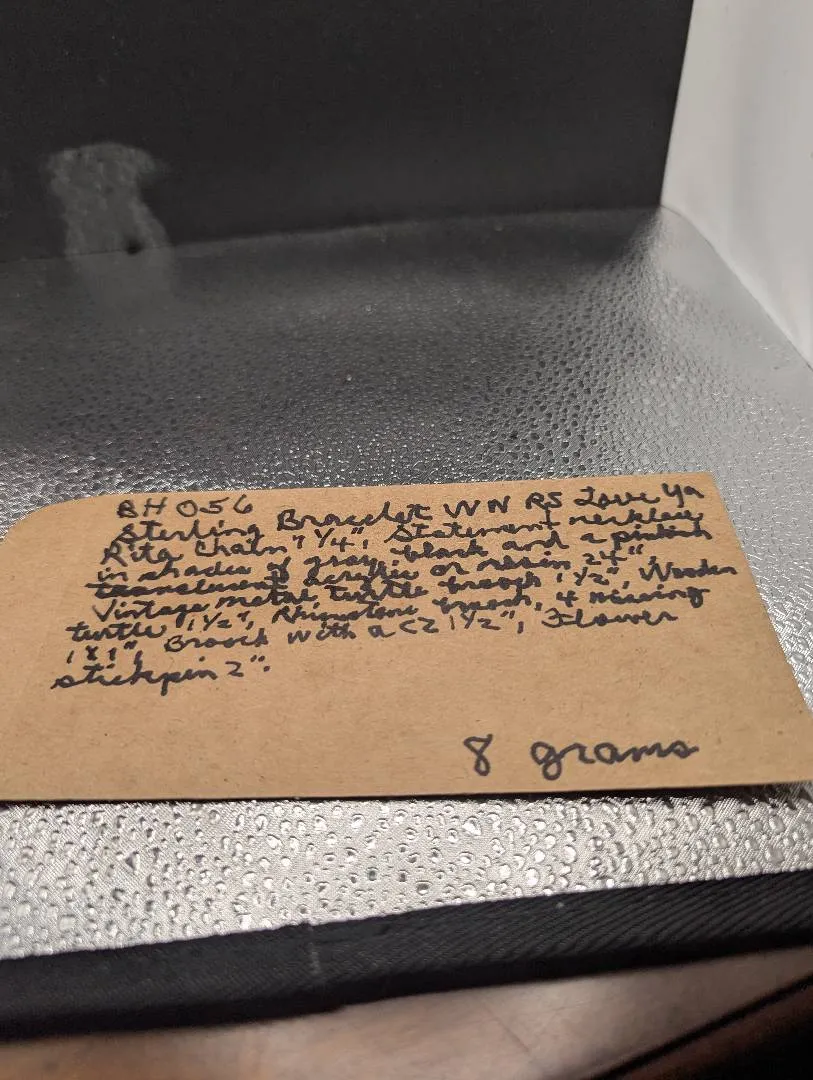 BH 056
Sterling Bracelet WN RS Love Ya
Rita Chain 7 1/4", Statement necklace
in shades of gray, black and a pinkish
translucent acrylic or resin 24",
Vintage metal turtle brooch 1 1/2", Wooden
turtle 1 1/2", Rhinestone brooch, 4 missing
1x1", Brooch with a CZ 1 1/2", Flower
stickpin 2".
8 grams